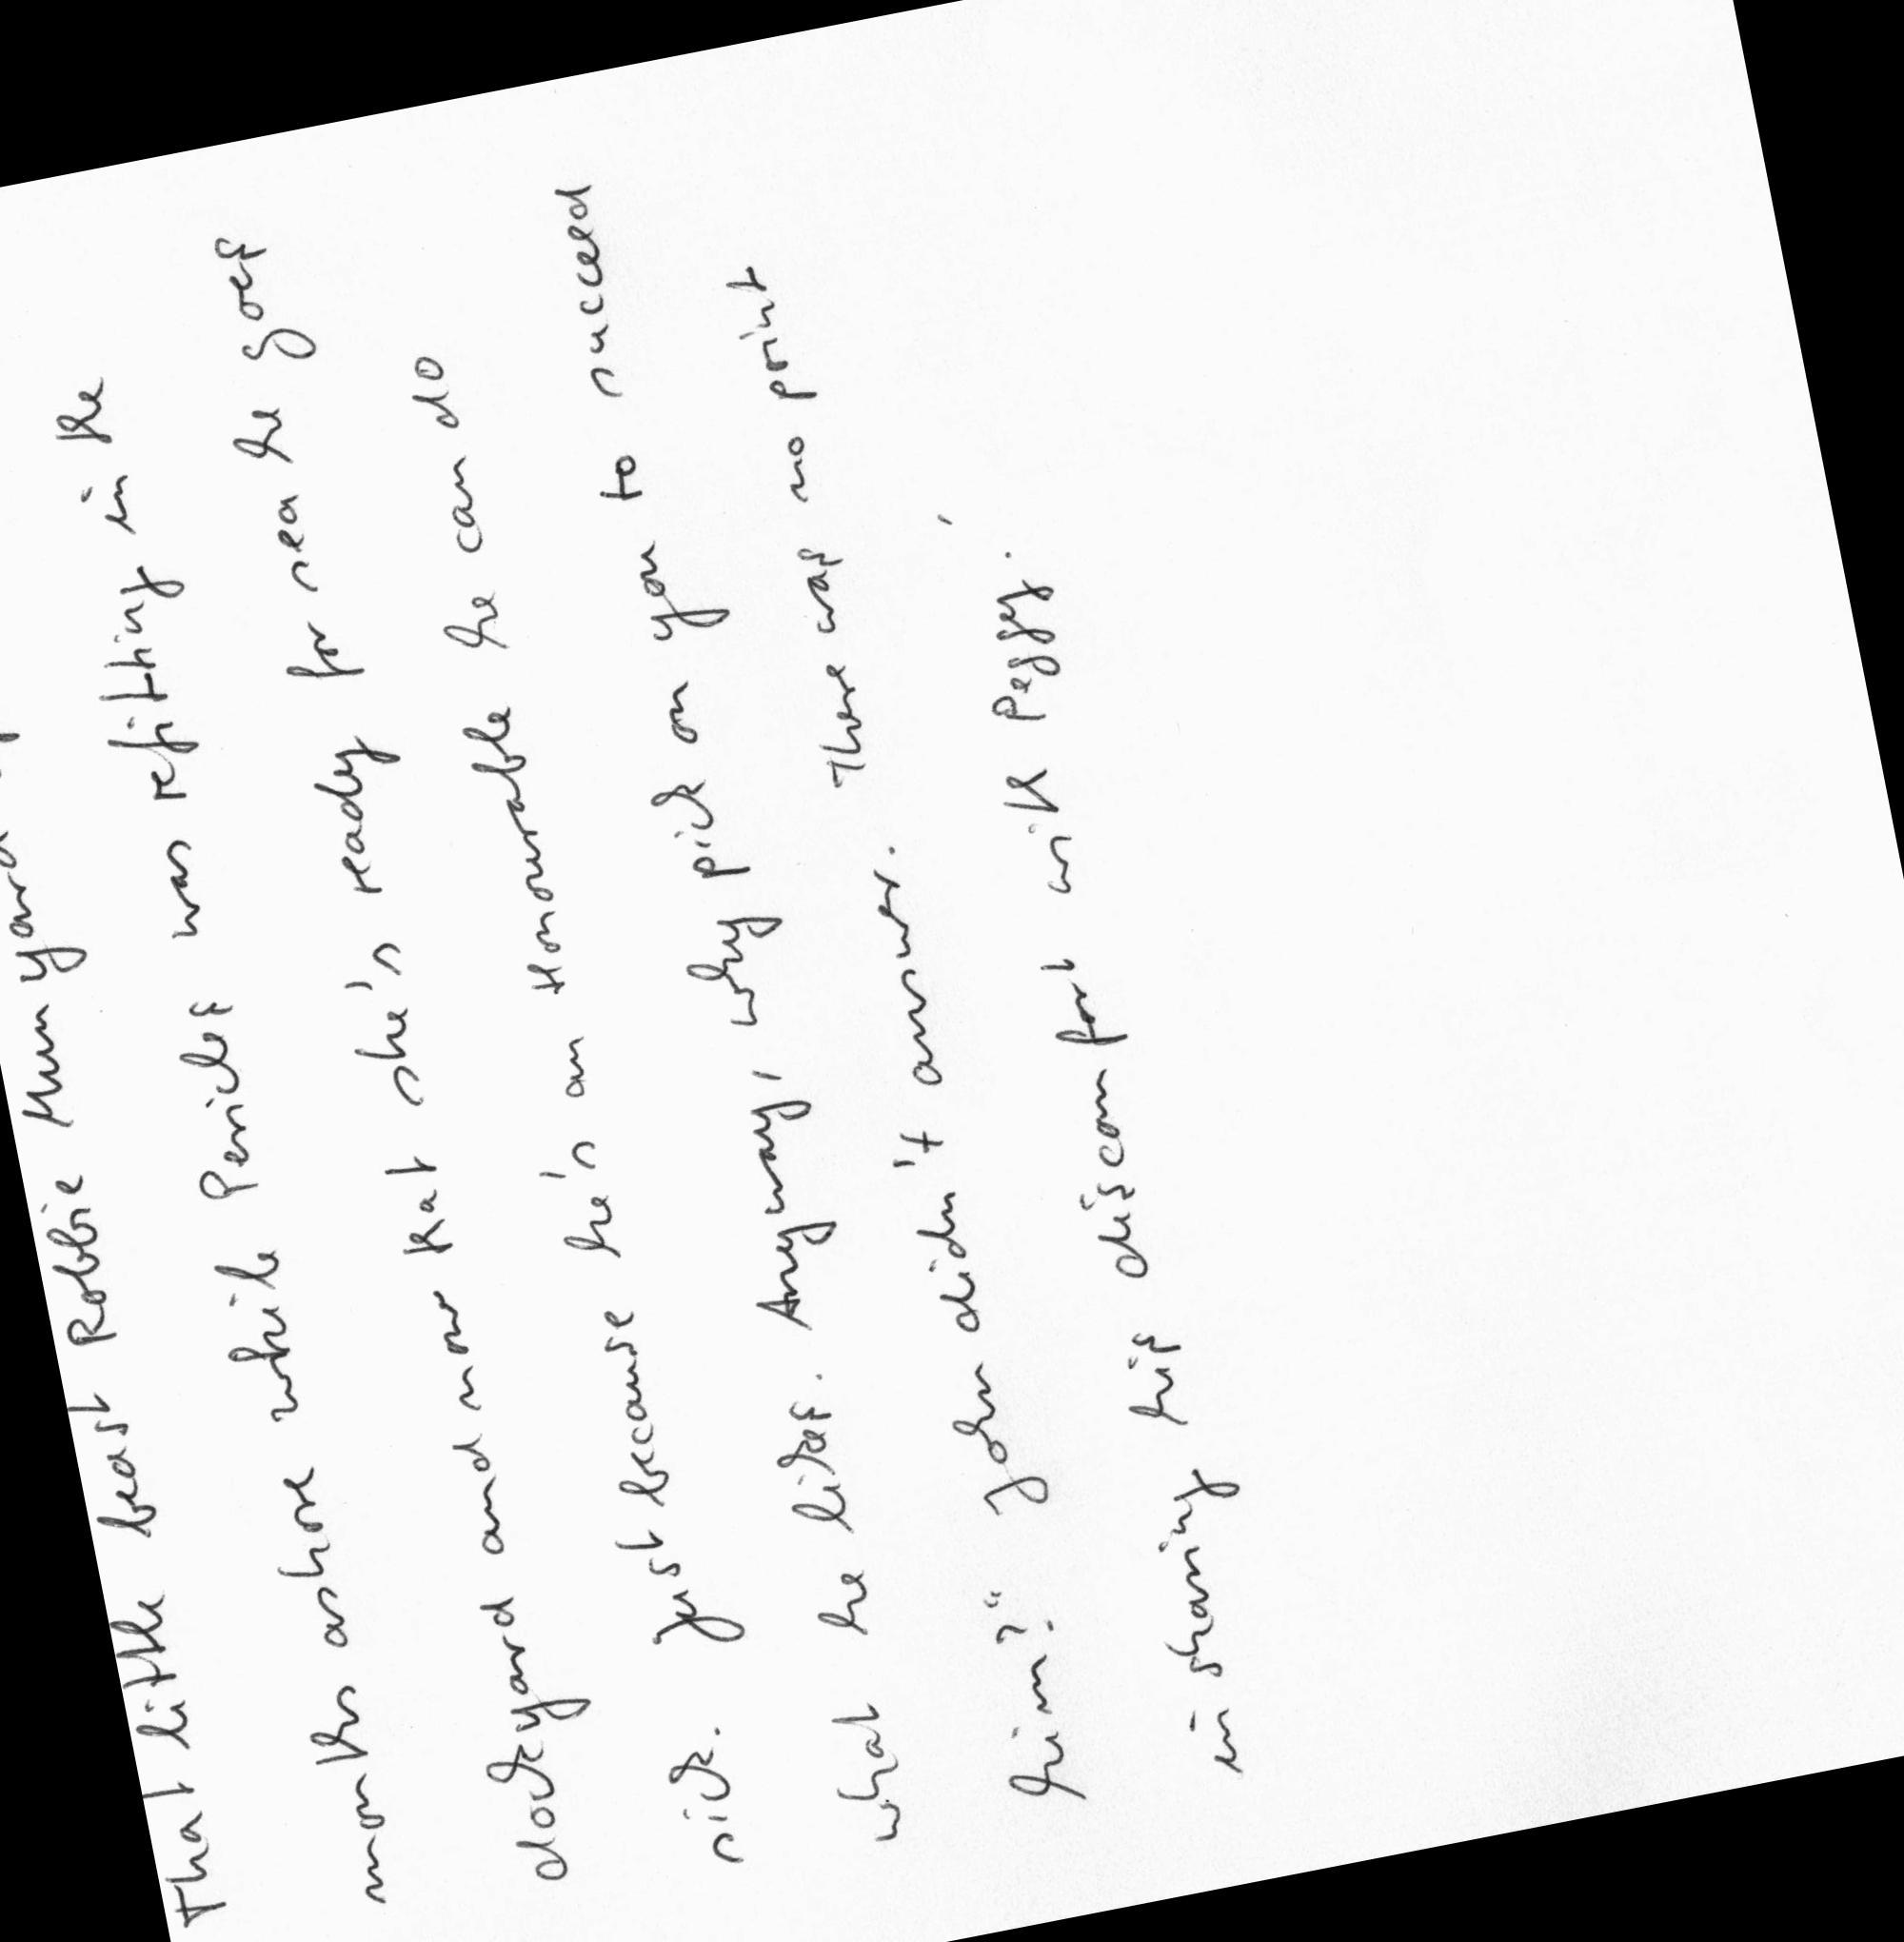 That little beast Robbie Munyard
months ashore while Pericles was refitting in the
dockyard and now that she's ready for sea he goes
sick. Just because he's an Honourable he can do
what he likes. Anyway, why pick on you to succeed
him?" John didn't answer. There was no point
in sharing his discomfort with Peggy.